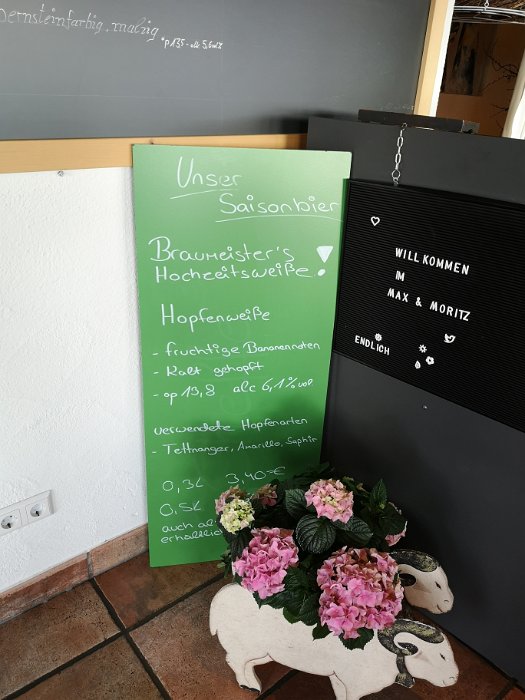 Bernsteinfarbig, malzig
°p 13,5 - alc 5,6 vol%
Unser
Saisonbier
Braumeister's
Hochzeitsweiße!
Hopfenweiße
- fruchtige Bananennoten
- Kalt gehopft
- °p 13,8 alc 6,1% vol
verwendete Hopfenarten
- Tettnanger, Amarillo, Saphir
0,3L 3,40 €
0,5L
auch
erhältlich
WILLKOMMEN
IM
MAX & MORITZ
ENDLICH